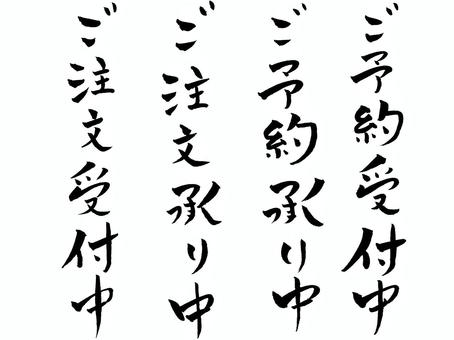 ご予約受付中
ご予約承り中
ご注文承り中
ご注文受付中